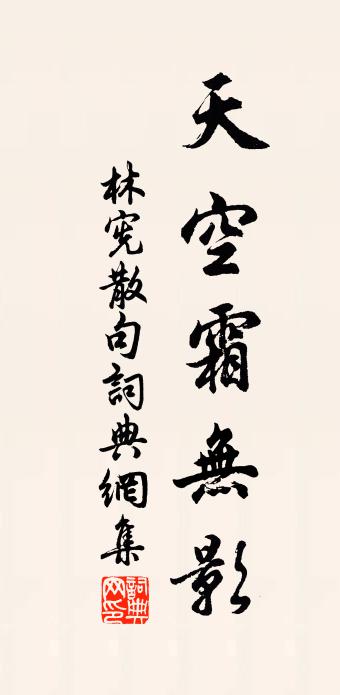 天空霜無影
林宪散句詞典網集
詞典
网印